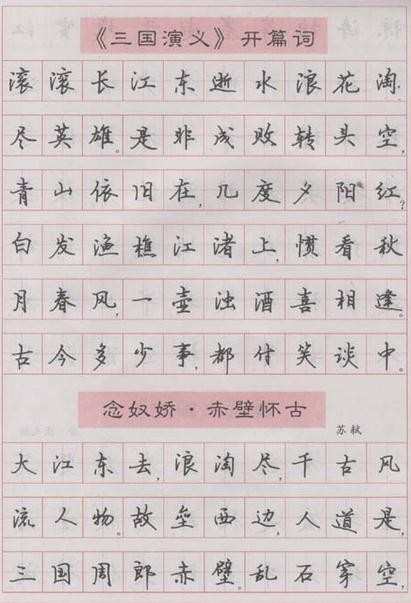 《三国演义》开篇词
滚滚长江东逝水浪花淘
尽英雄。是非成败转头空,
青山依旧在,几度夕阳红?
白发渔樵江渚上,惯看秋
月春风,一壶浊酒喜相逢。
古今多少事,都付笑谈中。
念奴娇·赤壁怀古
苏轼
大江东去,浪淘尽,千古风
流人物。故垒西边,人道是,
三国周郎赤壁。乱石穿空,